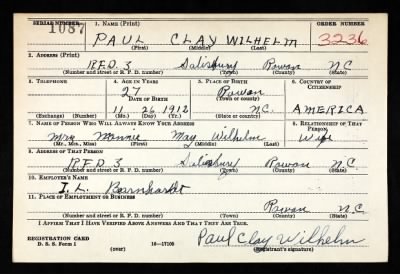 SERIAL NUMBER 1. NAME (Print) ORDER NUMBER
1087 PAUL CLAY WILHELM 3236
(First) (Middle) (Last)
2. ADDRESS (Print)
R.F.D. 3 Salisbury Rowan N.C.
(Number and street or R. F. D. number) (Town) (County) (State)
3. TELEPHONE 4. AGE IN YEARS 5. PLACE OF BIRTH 6. COUNTRY OF CITIZENSHIP
27 Rowan
DATE OF BIRTH (Town or county)
11 26 1912 N.C. AMERICA
(Exchange) (Number) (Mo.) (Day) (Yr.) (State or country)
7. NAME OF PERSON WHO WILL ALWAYS KNOW YOUR ADDRESS 8. RELATIONSHIP OF THAT PERSON
Mrs Minnie May Wilhelm Wife
(Mr., Mrs., Miss) (First) (Middle) (Last)
9. ADDRESS OF THAT PERSON
R.F.D. 3 Salisbury Rowan N.C.
(Number and street or R. F. D. number) (Town) (County) (State)
10. EMPLOYER'S NAME
I. L. Barnhardt
11. PLACE OF EMPLOYMENT OR BUSINESS
Rowan N.C.
(Number and street or R. F. D. number) (Town) (County) (State)
I AFFIRM THAT I HAVE VERIFIED ABOVE ANSWERS AND THAT THEY ARE TRUE.
REGISTRATION CARD Paul Clay Wilhelm
D. S. S. Form 1 (over) 16—17105 (Registrant's signature)